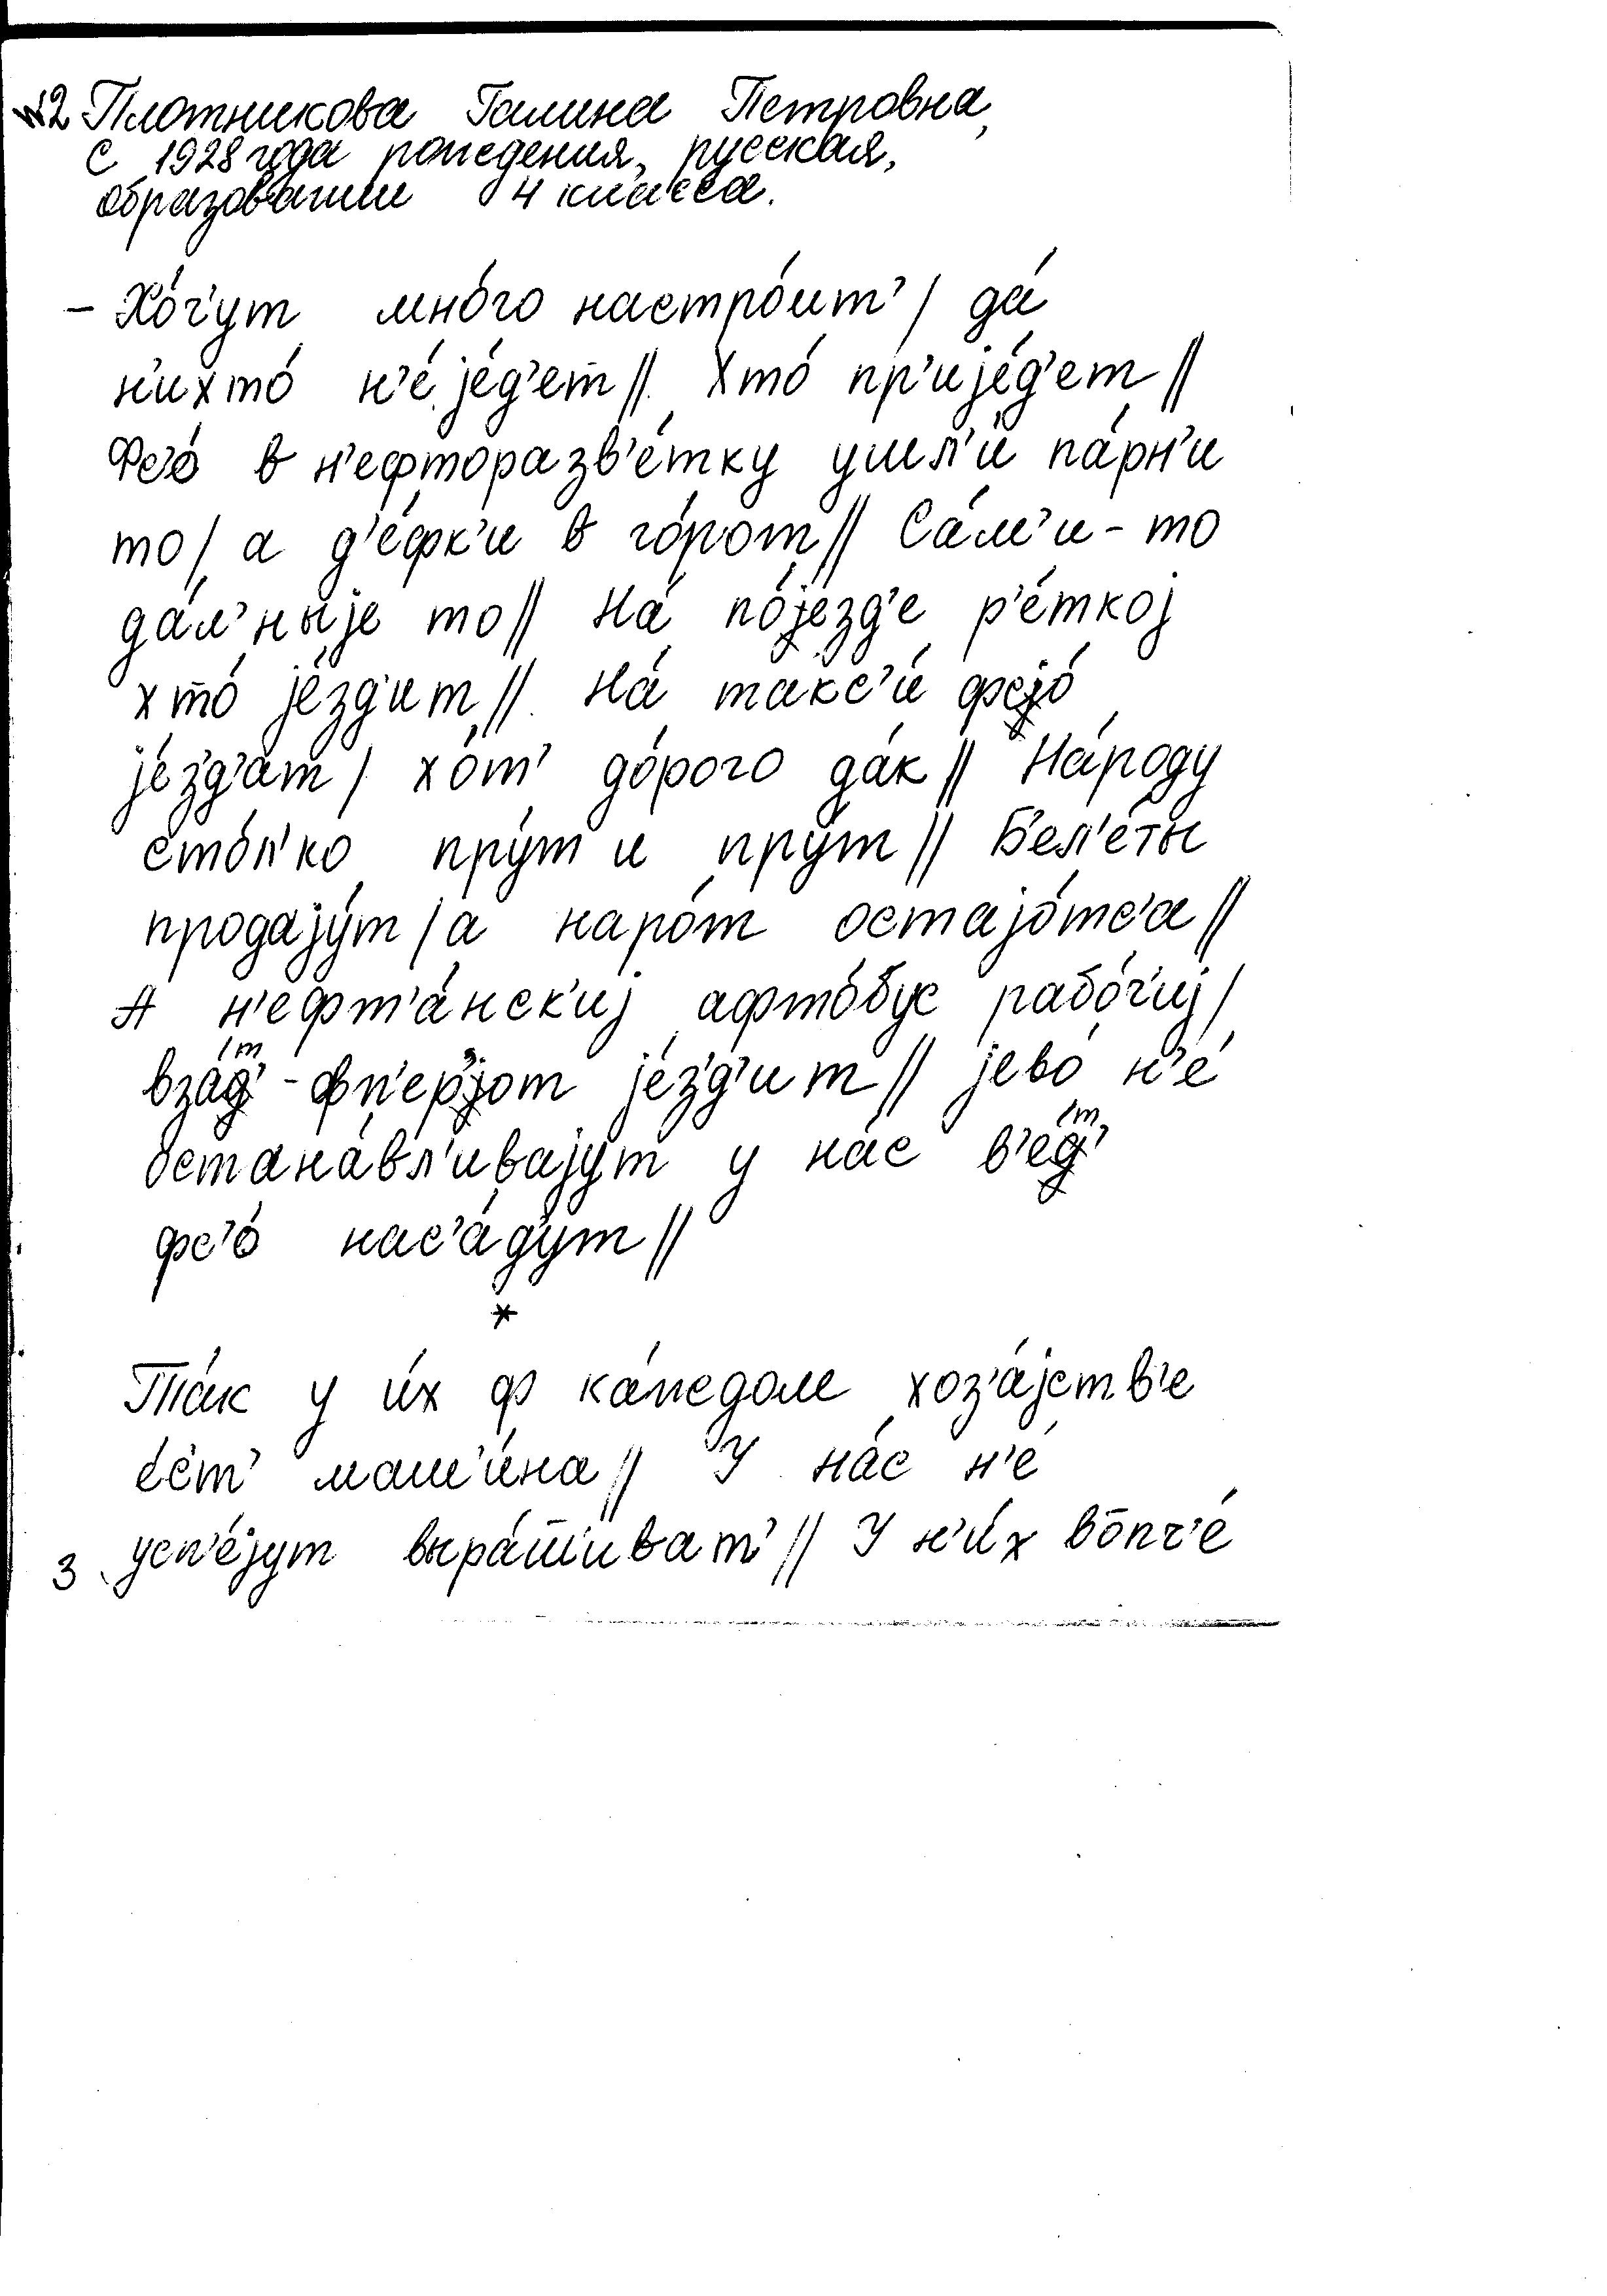 №2 Плотникова Галина Петровна,
с 1928 года рождения, русская,
образование 4 класса.
– Хо́ч'ут мно́го настро́ит' / да́
н'ихто́ н'е́ је́д'ет // Хто́ пр'ије́д'ет //
Фс'о́ в н'ефторазв'е́тку ушл'и́ па́рн'и
то / а д'е́фк'и в го́рот // Са́м'и-то
да́л'ныје то // На́ по́језд'е р'е́ткој
хто́ је́зд'ит // На́ такс'и́ фс'о́
је́з'д'ат / хо́т' до́рого да́к // На́роду
сто́л'ко пру́т и пру́т // Б'ел'е́ты
продају́т / а наро́т остајо́тс'а //
А н'ефт'а́нск'иј афто́бус рабо́ч'иј /
вза́т'-фп'ер'о́т је́з'д'ит // јево́ н'е́
остана́вл'ивајут у на́с в'е́т'
фс'о́ нас'а́дут //
*
Та́к у и́х ф ка́ждом хоз'а́јств'е
е́ст' маш'и́на // У на́с н'е́
усп'е́јут выра́ш̄'иват' // У н'и́х во̄пч'е́
3